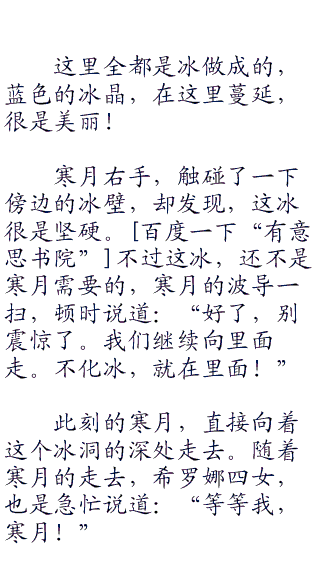 这里全都是冰做成的，
蓝色的冰晶，在这里蔓延，
很是美丽！
寒月右手，触碰了一下
傍边的冰壁，却发现，这冰
很是坚硬。[百度一下“有意
思书院”]不过这冰，还不是
寒月需要的，寒月的波导一
扫，顿时说道：“好了，别
震惊了。我们继续向里面
走。不化冰，就在里面！”
此刻的寒月，直接向着
这个冰洞的深处走去。随着
寒月的走去，希罗娜四女，
也是急忙说道：“等等我，
寒月！”